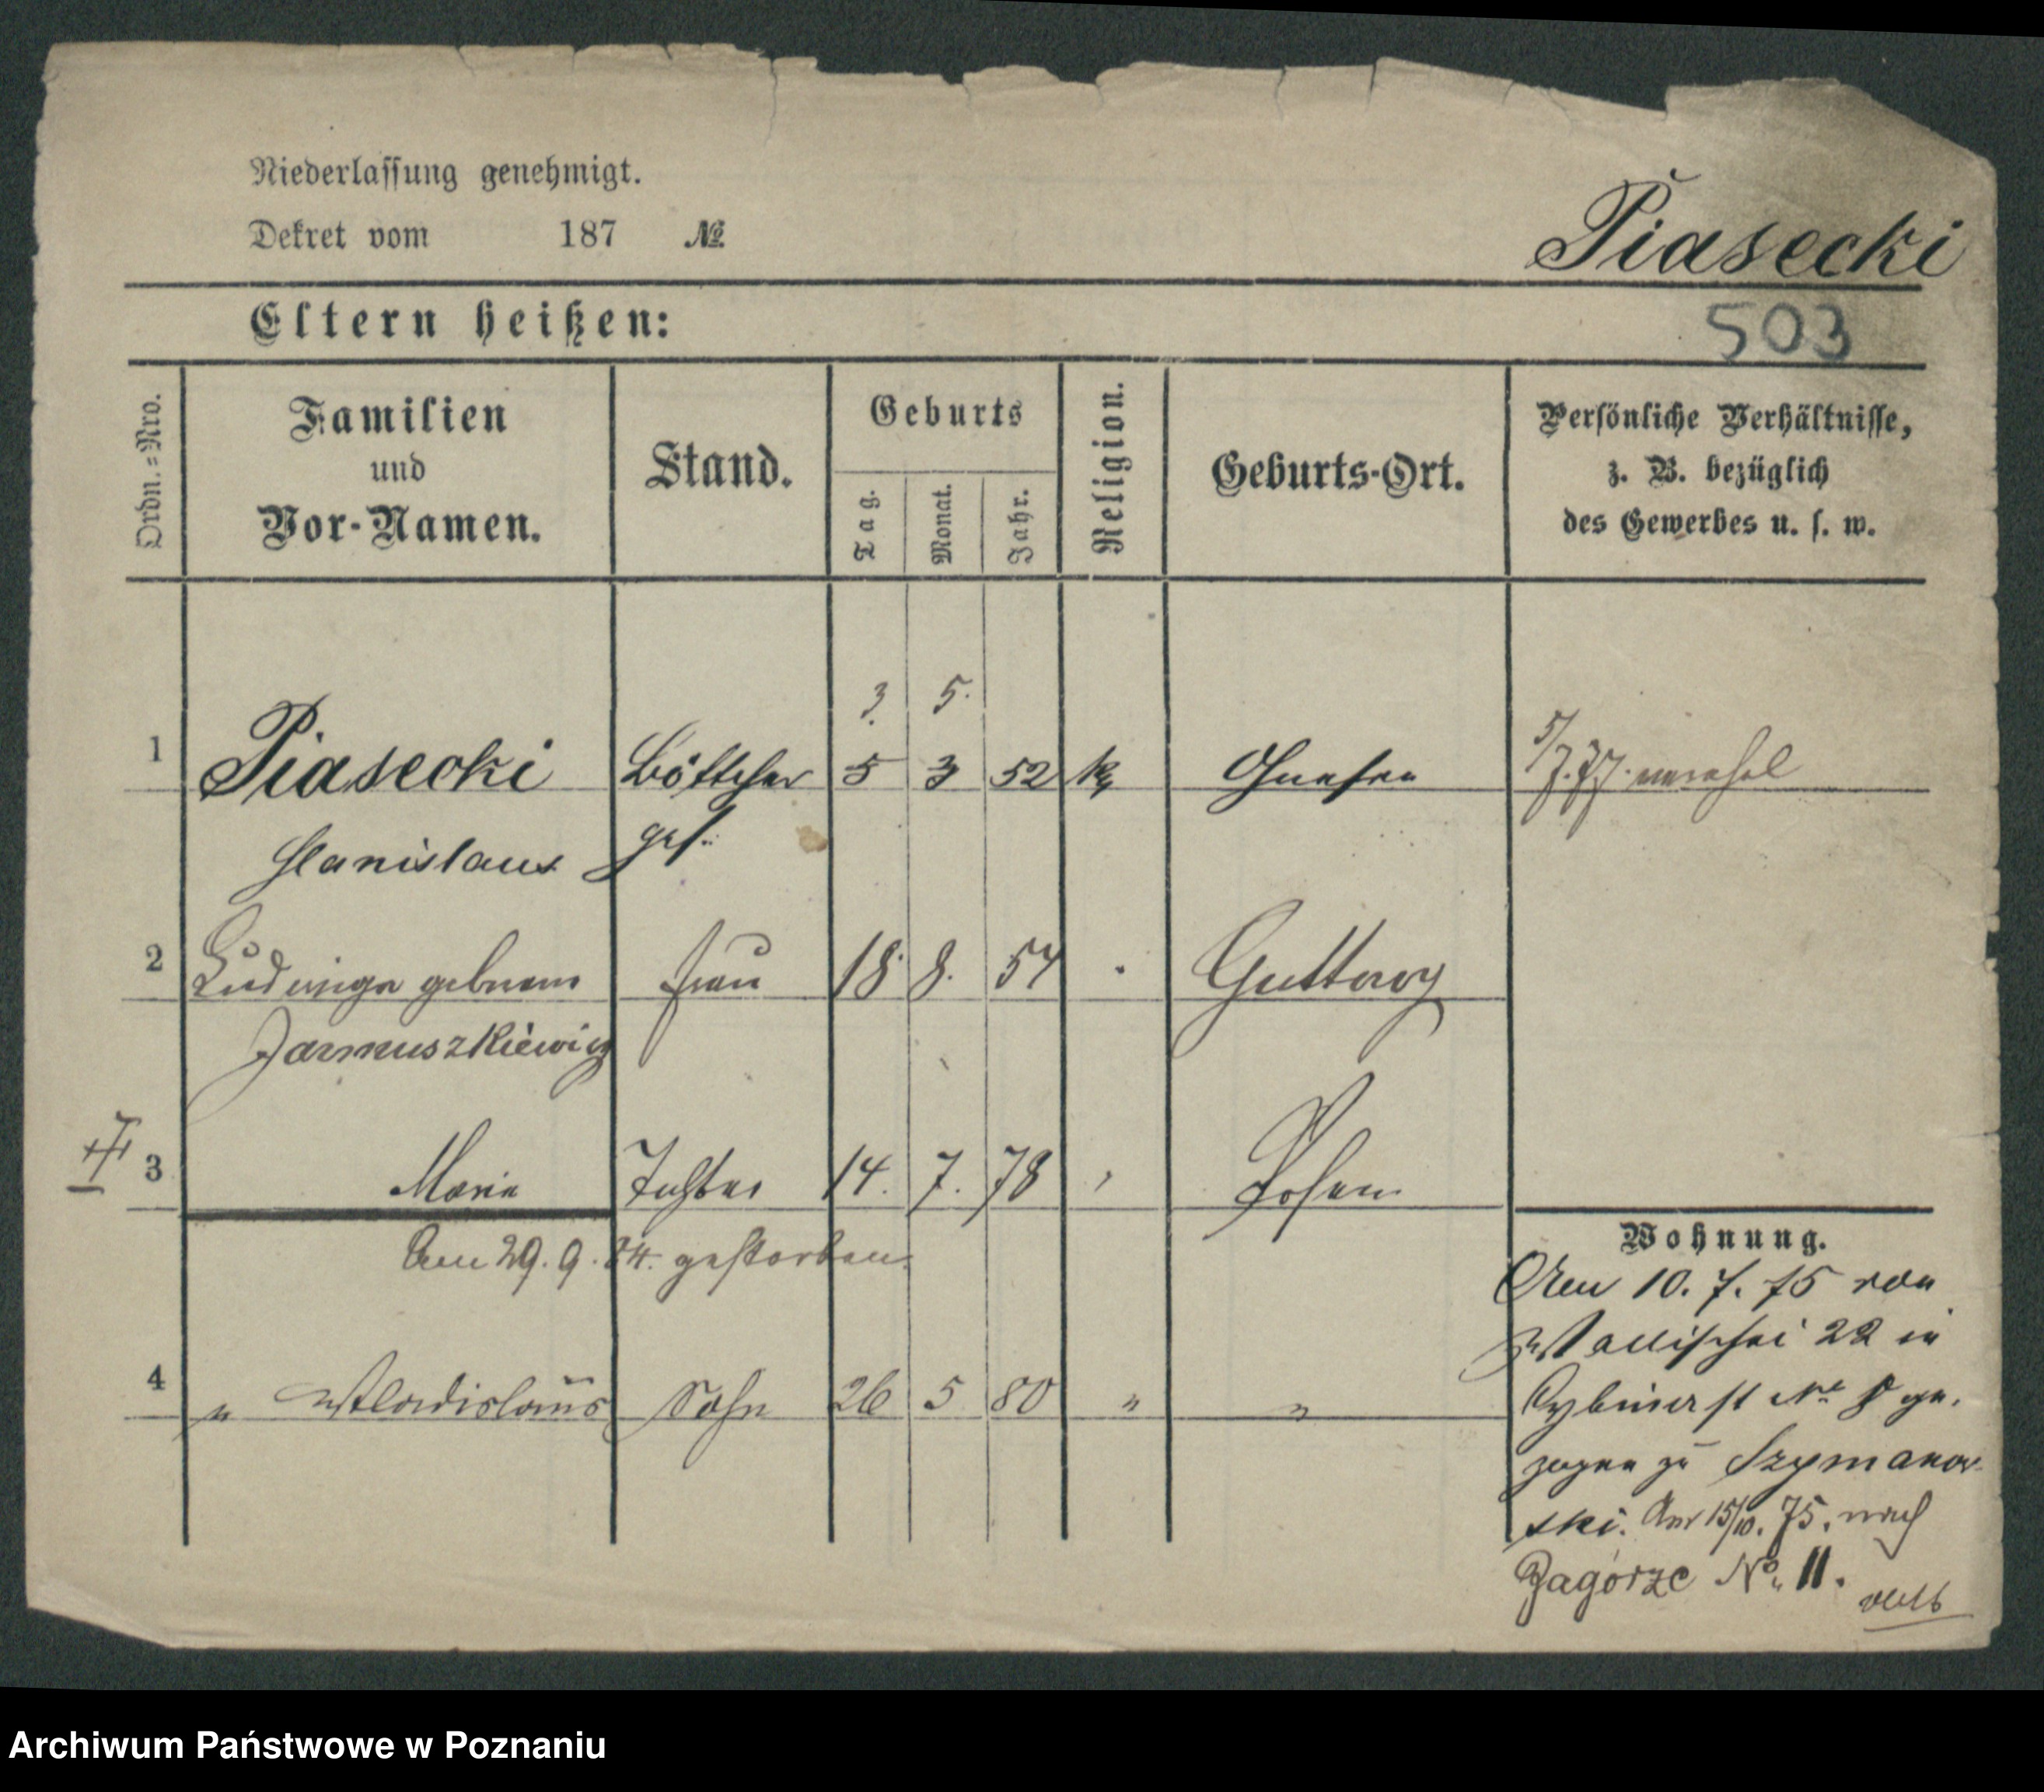 Niederlassung genehmigt.
Dekret vom 187 №
Piasecki
503
Eltern heißen:
Ordn.=Nro.
Familien
und
Vor-Namen.
Stand.
Geburts
Tag.
Monat.
Jahr.
Religion.
Geburts-Ort.
Persönliche Verhältnisse,
z. B. bezüglich
des Gewerbes u. s. w.
3. 5.
1 Piasecki Böttcher 5 3 52 k. Gnesen 5/7.77. verehel
Stanislaus ges.
2 Ludwiga geborene Frau 18. 8. 54 Guttowy
Jarmuszkiewicz
3 Marie Tochter 14. 7. 78 Posen
Am 29. 9. 84. gestorben.
4 " Wladislaus Sohn 26 5 80 " "
Wohnung.
Am 10. 7. 75 von
Wallischei 22 in
Cybinerst № ge.
zogen zu Szymanow
ski. Am 15/10. 75. nach
Zagorze No. 11.